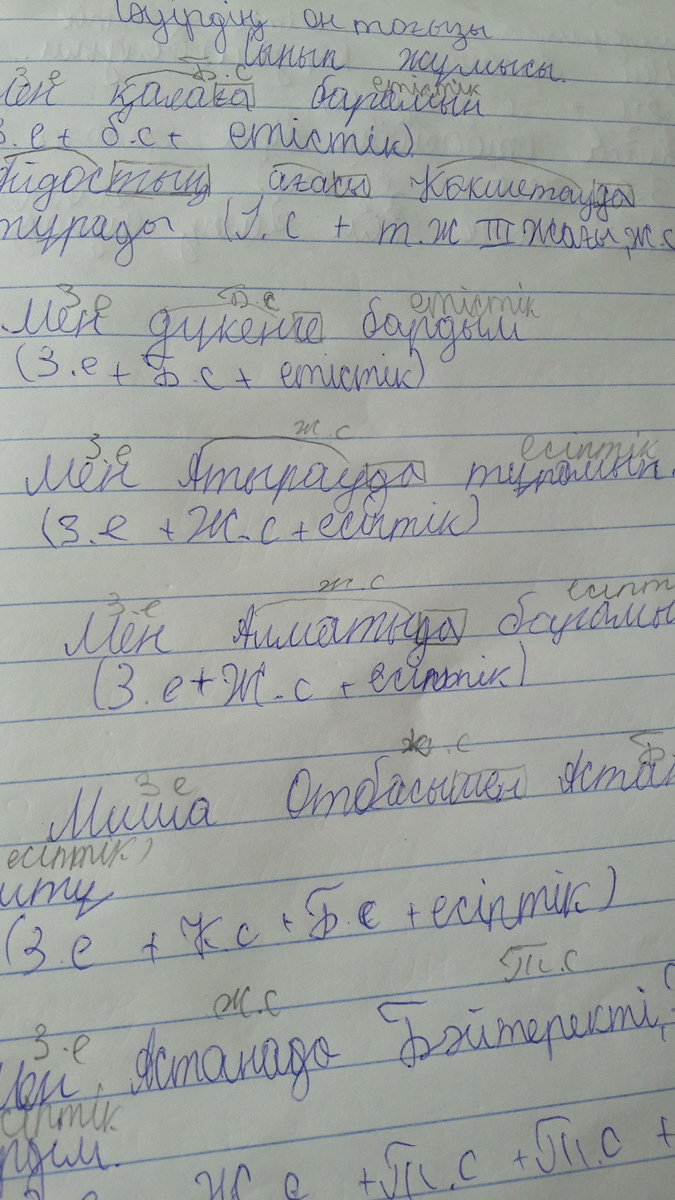 Сәуірдің он тоғызы
Сынып жұмысы.
З.е Б.с етістік
Мен қалаға барамын
З.е + б.с + етістік)
Айдостың ағасы Көкшетауда
тұрады (І.с + т.ж ІІІ жағы, ж.с
З.е Б.с етістік
Мен дүкенге бардым
(З.е + Б.с + етістік)
З.е ж.с есіптік
Мен Атырауда тұрамын.
(З.е + Ж.с + есіптік)
З.е ж.с есіпт
Мен Алматыда барамы
(З.е + Ж.с + есіптік)
З.е ж.с Б
Миша Отбасымен Аста
есіптік)
(З.е + К.с + Б.с + есіптік)
З.е Ж.с Т.с
Мен Астанада Бәйтеректі,
сіптік
рдім.
Ж.с + Т.с + Т.с +